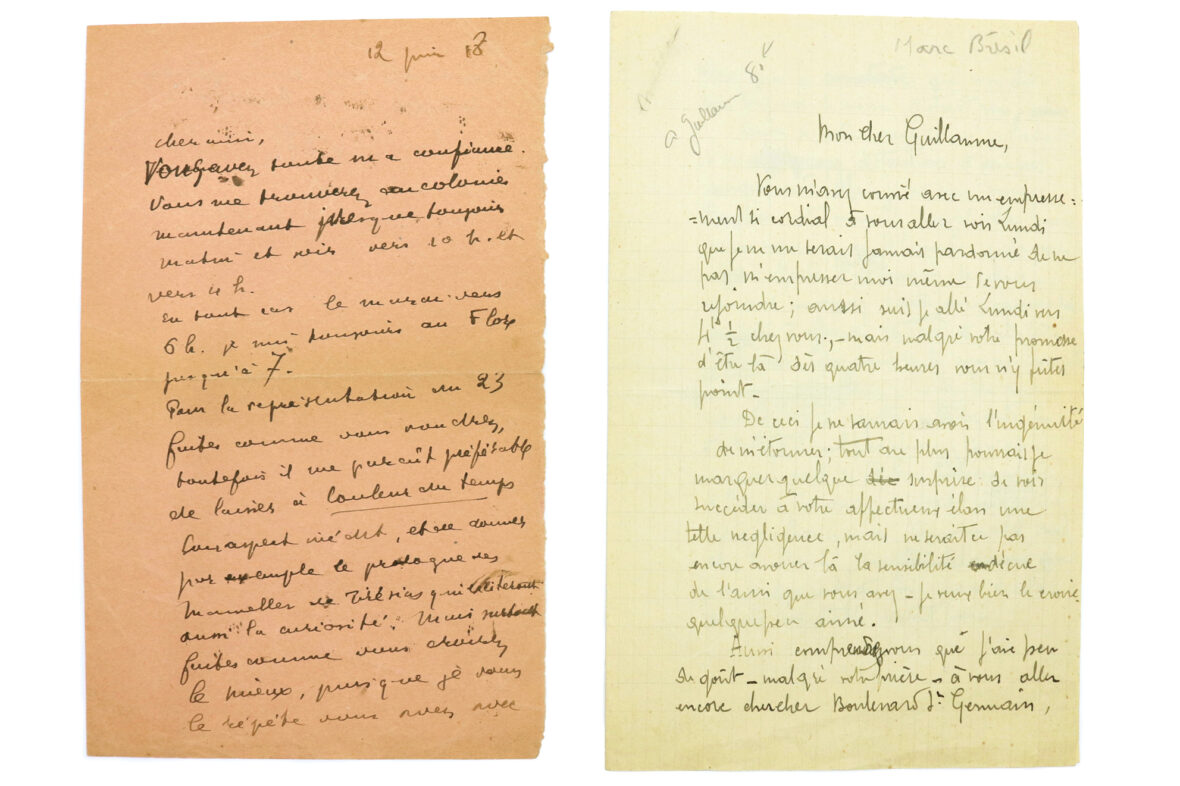 12 juin 18
cher ami,
Vous avez toute ma confiance.
Vous me trouverez au colonies
maintenant presque toujours
matin et soir vers 10 h. et
vers 4 h.
En tout cas le mardi vers
6 h. je suis toujours au Flore
jusqu'à 7.
Pour la représentation du 23
faites comme vous voudrez,
toutefois il me paraît préférable
de laisser à Couleur du temps
son aspect inédit, et de donner
par exemple le prologue des
Mamelles de Tirésias qui
aussi la curiosité. Mais surtout
faites comme vous croirez
le mieux, puisque je vous
le répète vous avez avec
Marc Brésil
a Guillaume 80
Mon cher Guillaume,
Vous m'avez convié avec un empresse=
=ment si cordial à vous aller voir Lundi
que je ne me serais jamais pardonné de ne
pas m'empresser moi même de vous
rejoindre; aussi suis je allé Lundi vers
4h ½ chez vous, – mais malgré votre promesse
d'être là dès quatre heures vous n'y fûtes
point –
De ceci je ne saurais avoir l'ingénuité
de m'étonner; tout au plus pourrais je
marquer quelque surprise de voir
succéder à votre affectueux élan une
telle negligence, mais ne serait ce pas
encore avouer là la sensibilité
de l'ami que vous avez – je veux bien le croire
quelque peu aimé.
Aussi comprendrez vous que j'aie peu
de goût – malgré votre prière – à vous aller
encore chercher Boulevard St Germain,